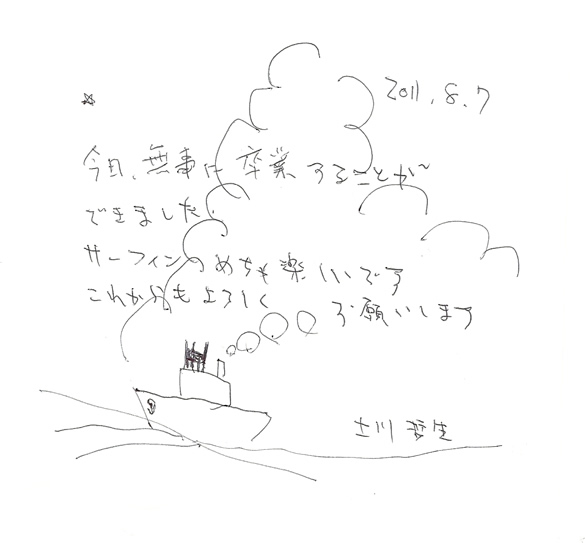 2011.8.7
今日、無事に卒業することが
できました.
サーフィンのめちゃ楽しいです
これからもよろしく
お願いします
土川 哲生